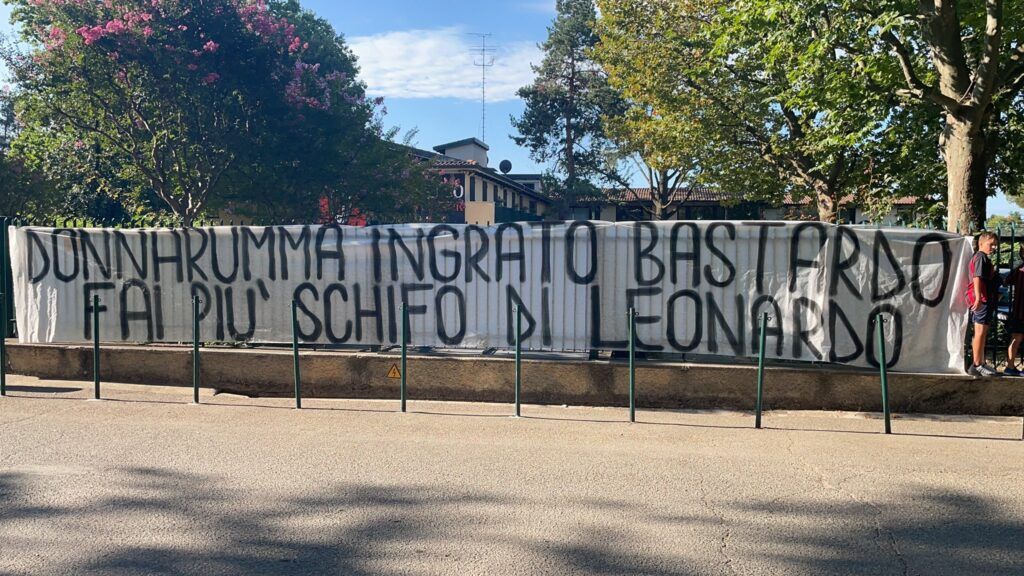 DONNARUMMA INGRATO BASTARDO
FAI PIU' SCHIFO DI LEONARDO